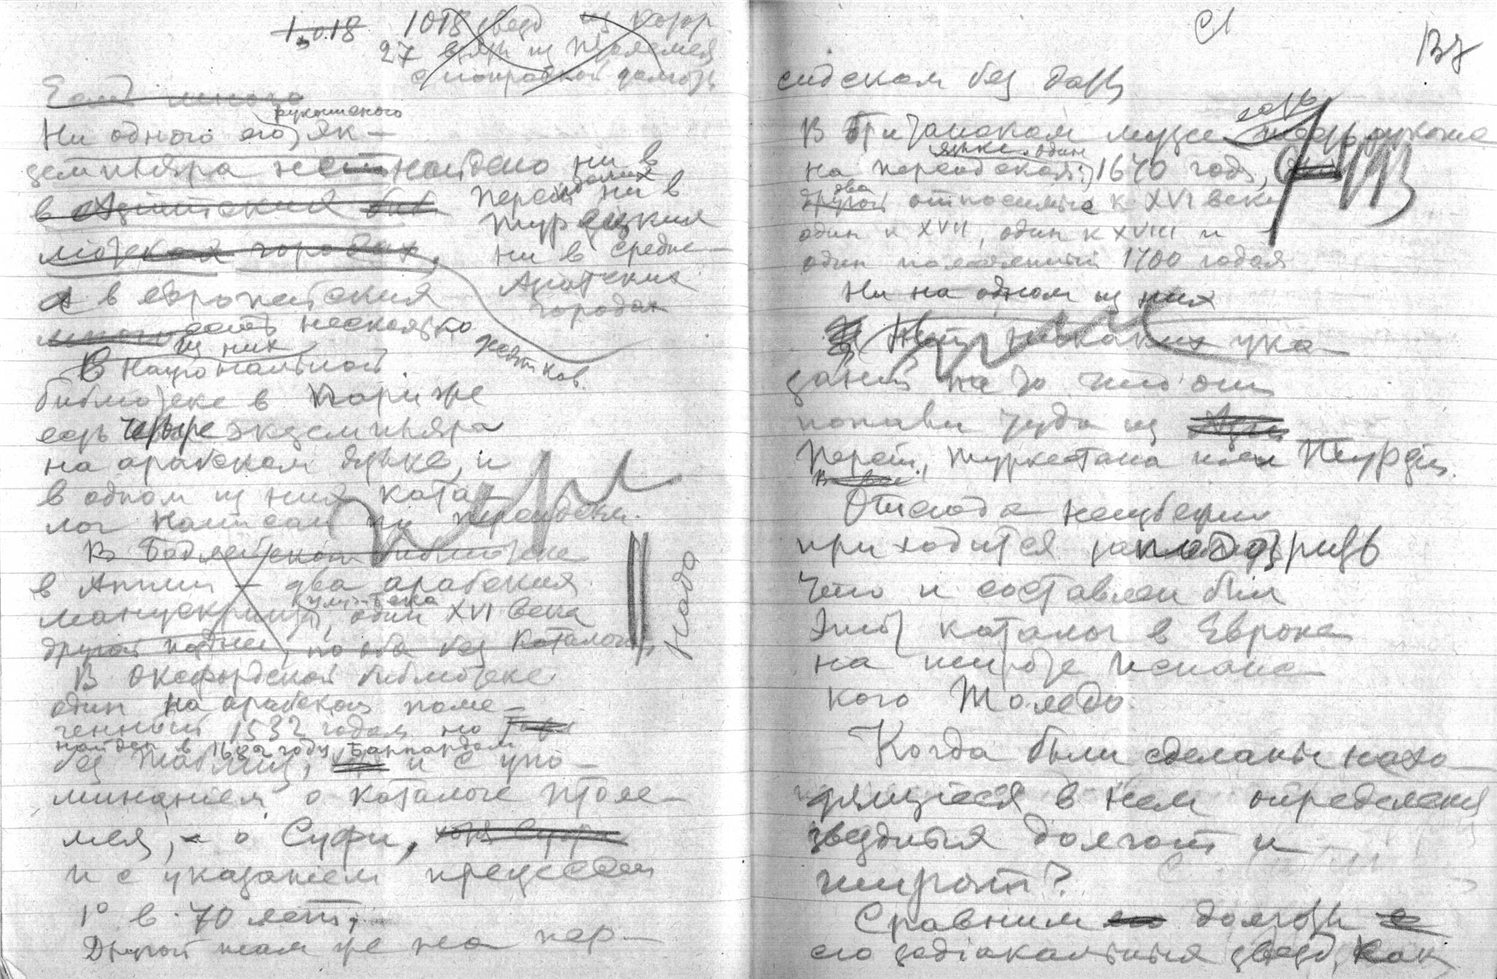 1018 1018 звезд из котор
27 взяти из Птолемея
с поправкой долготы
Есть много
рукописного
Ни одного его эк-
земпляра нет найдено ни в
в Азиатских биб Персидских ни в
Турецких
мотеках городах, ни в Средне-
Азиатских
а в европейских городах
много есть несколько
из них
В Национальной
библиотеке в Париже
есть четыре экземпляра
на арабском языке, и
в одном из них ката-
лог написан по персидски.
В Бодлейской библиотеке
в Англии — два арабских
манускрипта, один XVI века
другой позднее, но оба без каталога
Надо
В Оксфордской библиотеке
один на арабском поме-
ченный 1532 годом но
найден в году
без таблиц, и с упо-
минанием о каталоге Птоле-
мея, о Суфи,
и с указанием прецессии
1° в 70 лет,
Другой там же на пер-
С1
137
сидском без даты
В Британском музее есть
языке один
на персидском 1670 года,
два
другой относимые к XVI веку
один к XVII, один к XVIII и
один помеченный 1700 годом
Ни на одном из них
Нет никаких ука-
заний на то что они
попали туда из
Персии, Туркестана или Турции.
Отсюда неизбежно
приходится заподозрить
что и составлен был
этот каталог в Европе
на широте Испанс-
кого Толедо.
Когда были сделаны нахо-
дящиеся в нем определения
звездных долгот и
широт?
Сравним долготы
его зодиакальных звезд, как